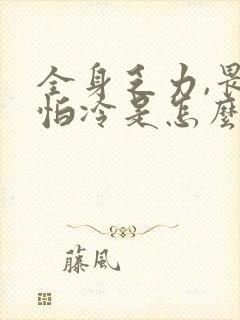 全身乏力,畏
怕冷是怎麼
藤風